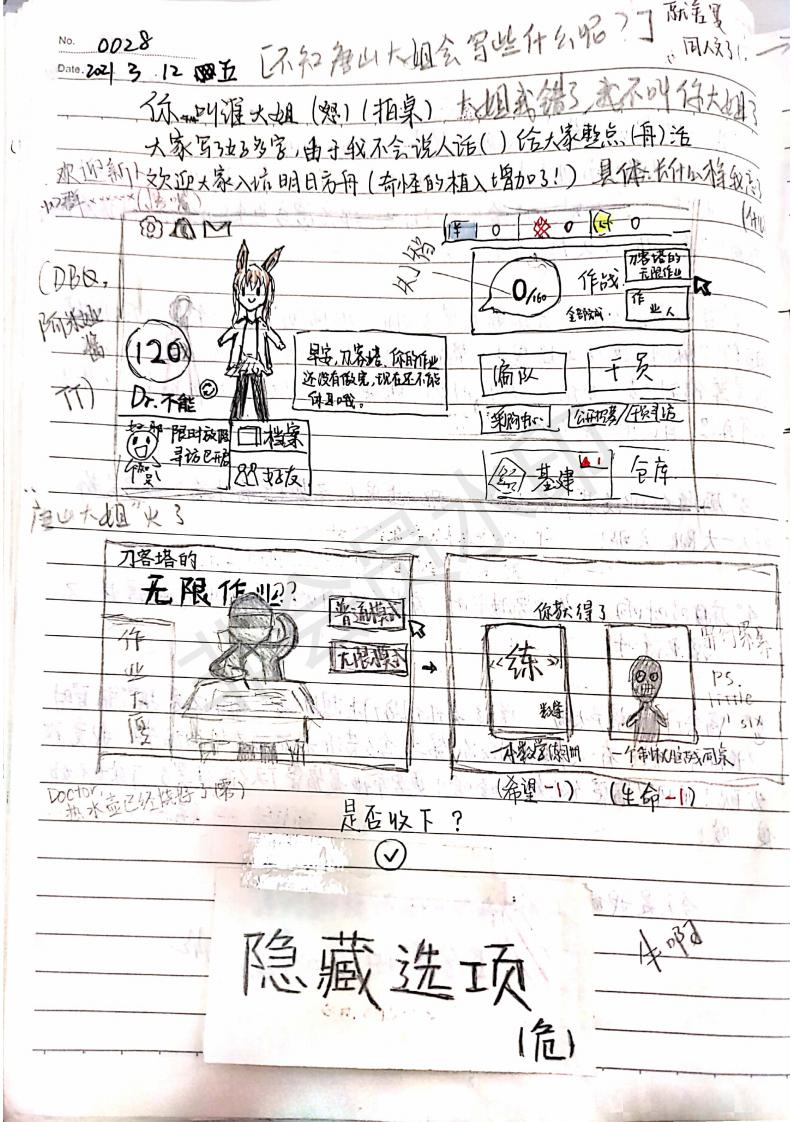 No. 0028
Date. 2021 3 12 五
[不知唐山大姐会写些什么呢?]
同人文了!
你叫谁大姐(怒)(拍桌) 大姐我错了我不叫你大姐了
大家写了好多字,由于我不会说人话()给大家整点(再)活
欢迎新人
欢迎大家入坑明日方舟(奇怪的植入增加了!) 具体长什么样我忘了
0 0 0
从了智
0/160
作战
全部完成
刀客塔的
无限作业
作业人
(DBQ,
阿米娅
酱
TT)
120
Dr.不能
早安,刀客塔,你的作业
还没有做完,现在还不能
休息哦。
编队
干员
采购中心
公开招募/干员寻访
限时放限
寻访已开启
档案
好友
基建
1
仓库
"唐山大姐"火了
刀客塔的
无限作业??
普通模式
无限模式
作业大厦
你获得了
《练》
数学
一本数学练习册
(希望-1)
(生命-1)
PS.
little
six
Doctor,
热水壶已经烧好了(雾)
是否收下?
牛啊
隐藏选项
(危)